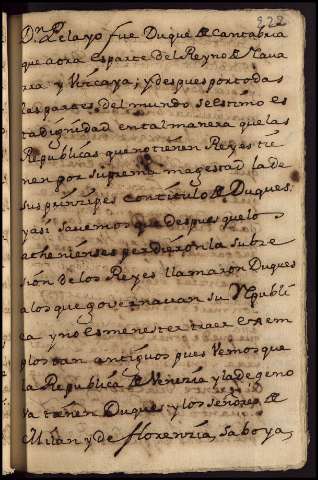 222
Dn. Pelayo fue Duque de Cantabria
que aora es parte del Reyno de Nava
rra y Vizcaya; y despues por todas
las partes del mundo se estimo es
ta dignidad en tal manera que las
Republicas que no tienen Reyes tie
nen por suprema magestad la de
sus prinzipes con titulo de Duques.
y asi savemos que despues que lo
athenienses perdieron la subze
sion de los Reyes llamaron Duques
a los que governavan su Republi
ca y no es menester traer exem
plos tan antiguos pues vemos que
la Republica de Venezia y la de geno
va tienen Duques y los señores de
Milan y de florenzia, saboya,